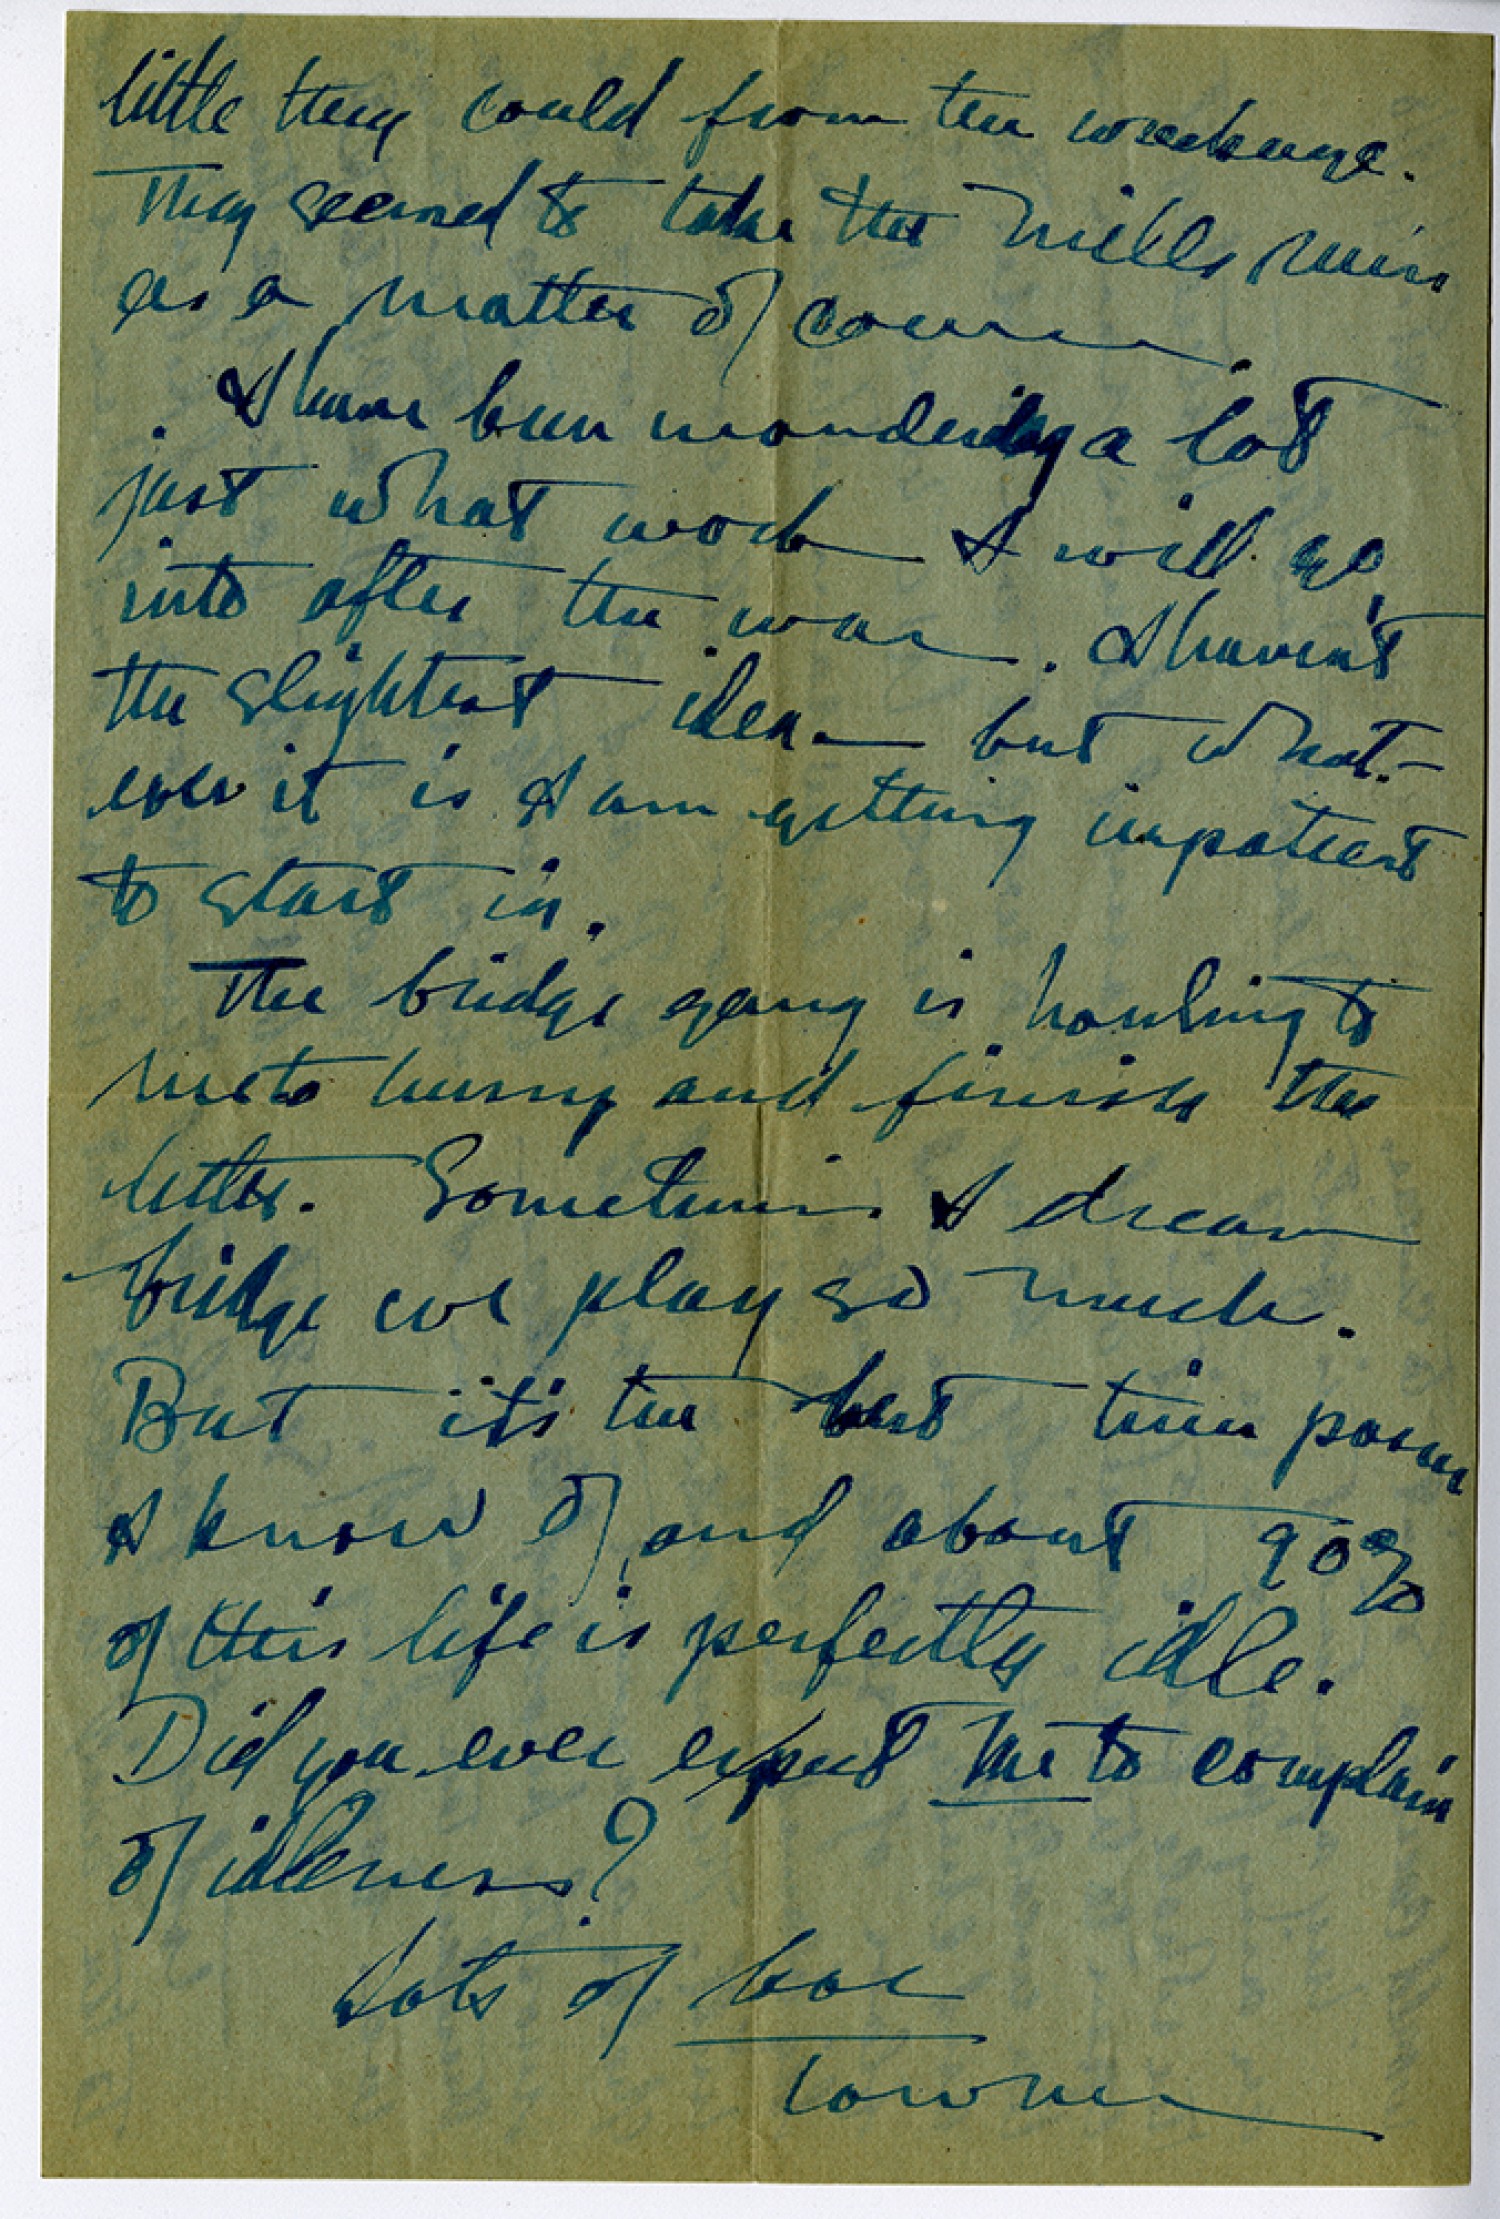 little they could from the wreckage.
They seemed to take the mills ruin
as a matter of course.
I have been wondering a lot
just what work I will go
into after the war. I haven't
the slightest idea - but what-
ever it is I am getting impatient
to start in.
The bridge gang is howling to
me to hurry and finish the
letter. Sometimes I dream
bridge we play so much.
But it's the best time
I know of, and about 90%
of this life is perfectly idle.
Did you ever expect me to complain
of idleness?
Lots of love